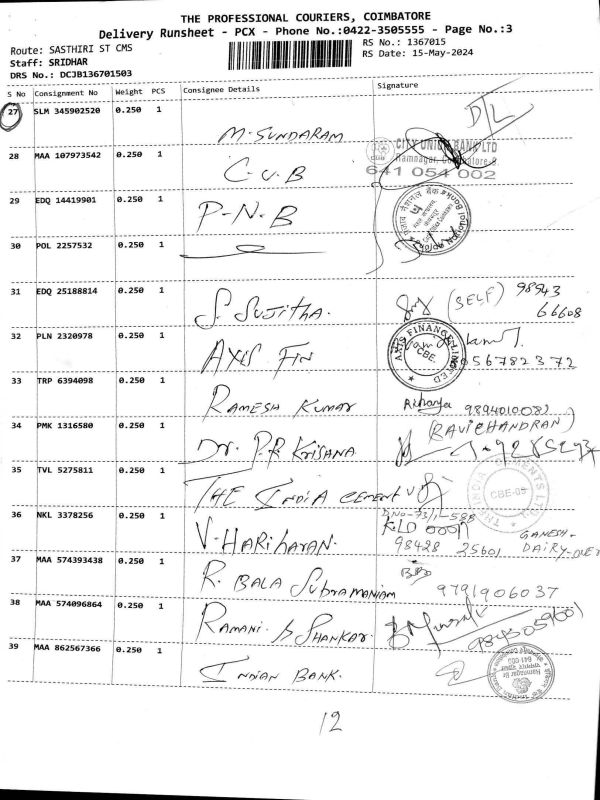 THE PROFESSIONAL COURIERS, COIMBATORE
Delivery Runsheet - PCX - Phone No.:0422-3505555 - Page No.:3
Route: SASTHIRI ST CMS
RS No.: 1367015
Staff: SRIDHAR
RS Date: 15-May-2024
DRS No.: DCJB136701503
S No Consignment No Weight PCS Consignee Details Signature
27 SLM 345902520 0.250 1 M. SUNDARAM D/L
28 MAA 107973542 0.250 1 C.U.B
CITY UNION BANK LTD
Ramnagar, Coimbatore-9
641 054 002
29 EDQ 14419901 0.250 1 P-N-B
30 POL 2257532 0.250 1
31 EDQ 25188814 0.250 1 S. SUJITHA. (SELF) 98943
66608
32 PLN 2320978 0.250 1 AXIS FIN
AXIS FINANCE LIMITED
CBE.
33 TRP 6394098 0.250 1 RAMESH KUMAR 9894010082
34 PMK 1316580 0.250 1 Dr. P.R KRISANA (RAVICHANDRAN)
35 TVL 5275811 0.250 1 THE INDIA CEMENT
CBE-05
36 NKL 3378256 0.250 1 V. HARIHARAN.
98428 25601 GANESH-
DAIRY-OVER
37 MAA 574393438 0.250 1 R. BALA SUBRAMANIAM 9791906037
38 MAA 574096864 0.250 1 RAMANI. SHANKAR
39 MAA 862567366 0.250 1 INDIAN BANK.
12